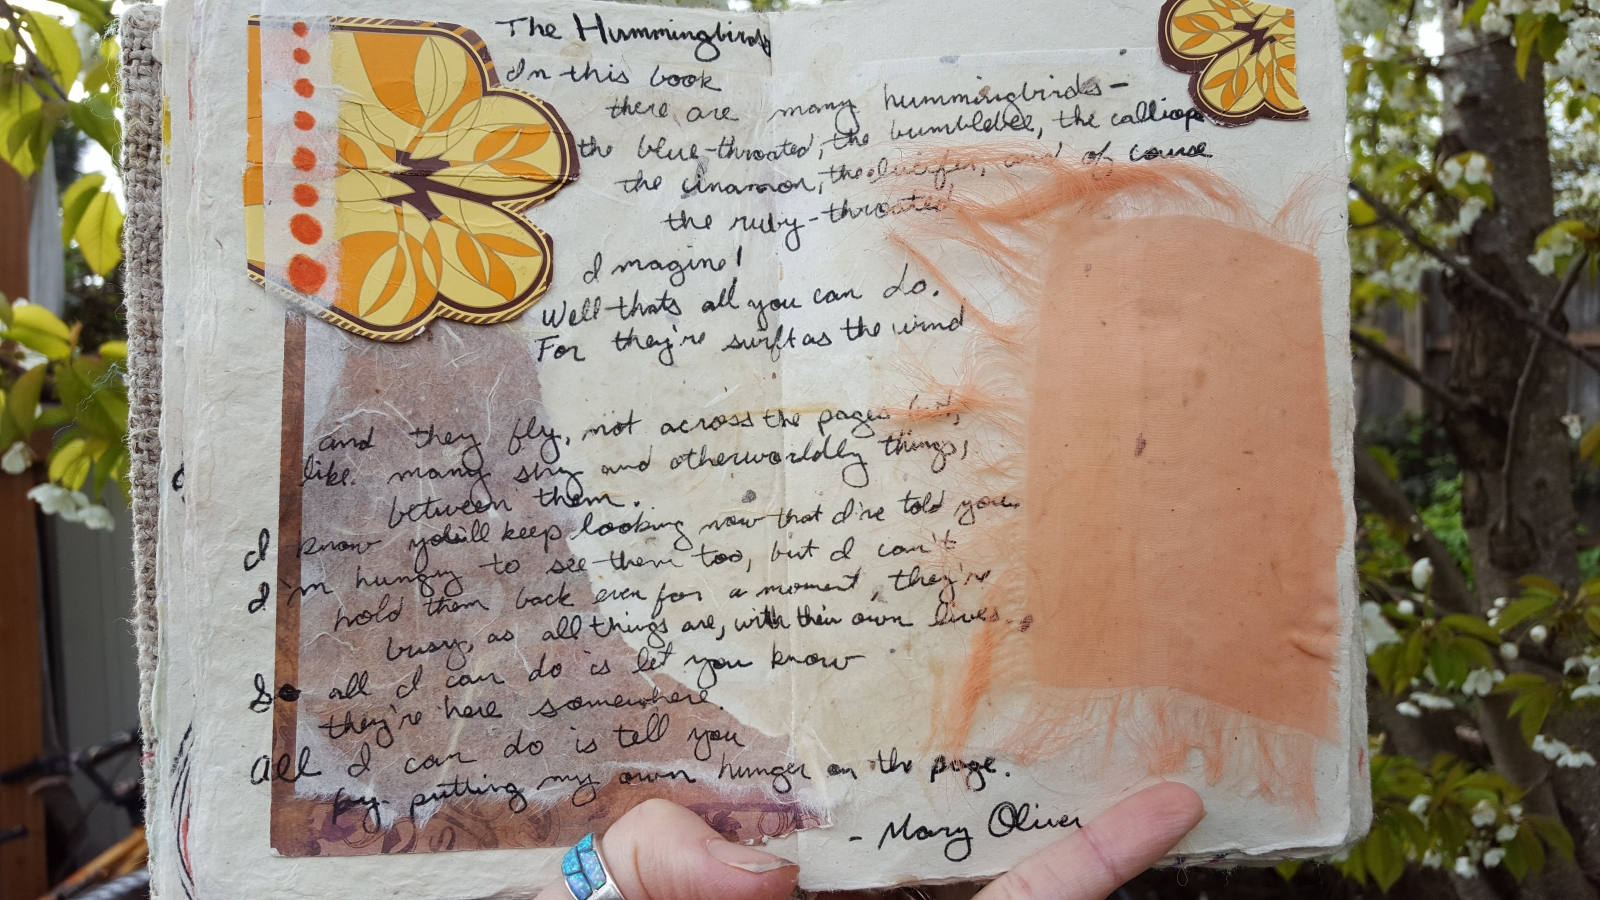 The Hummingbirds
In this book
there are many hummingbirds—
the blue-throated, the bumblebee, the calliope
the cinamon, the lucifer, and of course
the ruby-throated
Imagine!
Well thats all you can do.
For they're swift as the wind
and they fly, not across the pages but,
like many shy and otherworldly things,
between them.
I know you'll keep looking now that I've told you
I'm hungry to see them too, but I can't
hold them back even for a moment, they're
busy, as all things are, with their own lives.
So all I can do is let you know
they're here somewhere.
All I can do is tell you
by putting my own hunger on the page.
- Mary Oliver